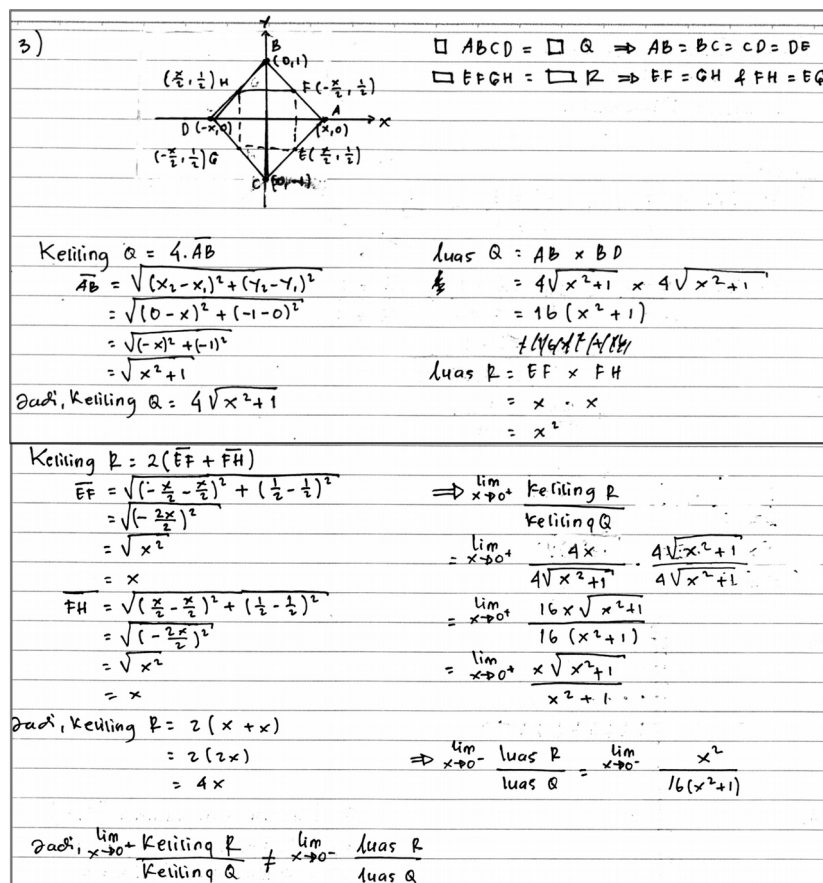 3)
Y
B
(0,1)
(x/2, 1/2) H
F(-x/2, 1/2)
A
D (-x,0)
(x,0)
X
(-x/2, 1/2) G
E(x/2, 1/2)
C
□ ABCD = □ Q ⇒ AB = BC = CD = DE
▭ EFGH = ▭ R ⇒ EF = GH & FH = EG
Keliling Q = 4.AB
AB = √((x₂-x₁)² + (y₂-y₁)²)
= √((0-x)² + (-1-0)²)
= √((-x)² + (-1)²)
= √(x²+1)
Jadi, Keliling Q = 4√(x²+1)
luas Q = AB x BD
= 4√(x²+1) x 4√(x²+1)
= 16(x²+1)
luas R = EF x FH
= x . x
= x²
Keliling R = 2(EF + FH)
EF = √((-x/2 - x/2)² + (1/2 - 1/2)²)
= √((-2x/2)²)
= √x²
= x
FH = √((x/2 - x/2)² + (1/2 - 1/2)²)
= √((-2x/2)²)
= √x²
= x
Jadi, Keliling R = 2(x+x)
= 2(2x)
= 4x
⇒ lim x→0⁺ Keliling R / Keliling Q
= lim x→0⁺ 4x / 4√(x²+1) . 4√(x²+1) / 4√(x²+1)
= lim x→0⁺ 16x√(x²+1) / 16(x²+1)
= lim x→0⁺ x√(x²+1) / x²+1
⇒ lim x→0⁻ luas R / luas Q = lim x→0⁻ x² / 16(x²+1)
Jadi, lim x→0⁺ Keliling R / Keliling Q ≠ lim x→0⁻ luas R / luas Q